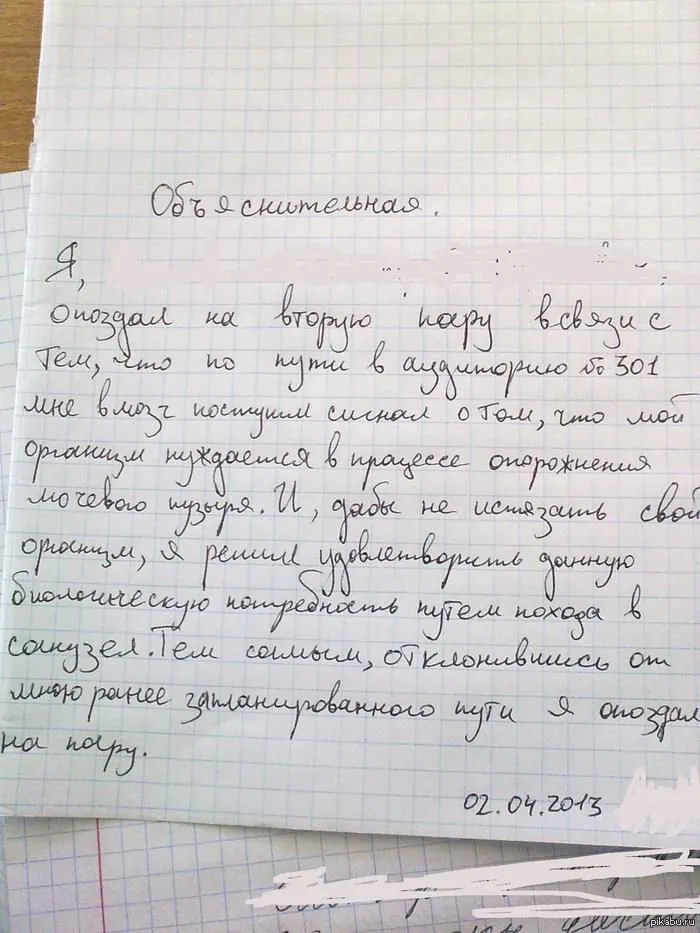 Объяснительная.
Я,
опоздал на вторую пару всвязи с
тем, что по пути в аудиторию № 301
мне в мозг поступил сигнал о том, что мой
организм нуждается в процессе опорожнения
мочевого пузыря. И, дабы не истязать свой
организм, я решил удовлетворить данную
биологическую потребность путем похода в
санузел. Тем самым, отклонившись от
мною ранее запланированного пути я опоздал
на пару.
02.04.2013
pikabu.ru